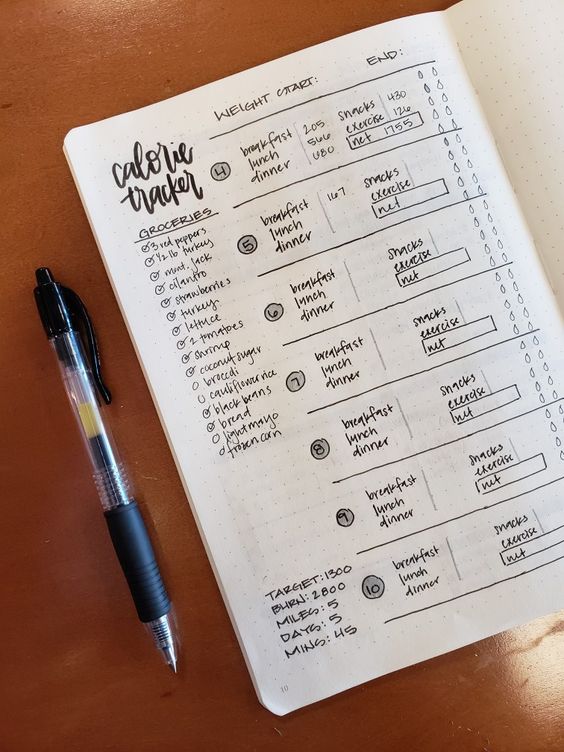 WEIGHT START:
END:
calorie
tracker
GROCERIES
3 red peppers
1/2 lb turkey
mont. jack
cilantro
strawberries
turkey
lettuce
2 tomatoes
shrimp
coconut sugar
broccoli
cauliflower rice
black beans
bread
light mayo
frozen corn
4
breakfast 205
lunch 566
dinner 680
snacks 430
exercise 126
net 1755
5
breakfast 167
lunch
dinner
snacks
exercise
net
6
breakfast
lunch
dinner
snacks
exercise
net
7
breakfast
lunch
dinner
snacks
exercise
net
8
breakfast
lunch
dinner
snacks
exercise
net
9
breakfast
lunch
dinner
snacks
exercise
net
10
breakfast
lunch
dinner
snacks
exercise
net
TARGET: 1300
BURN: 2800
MILES: 5
DAYS: 5
MINS: 45
10